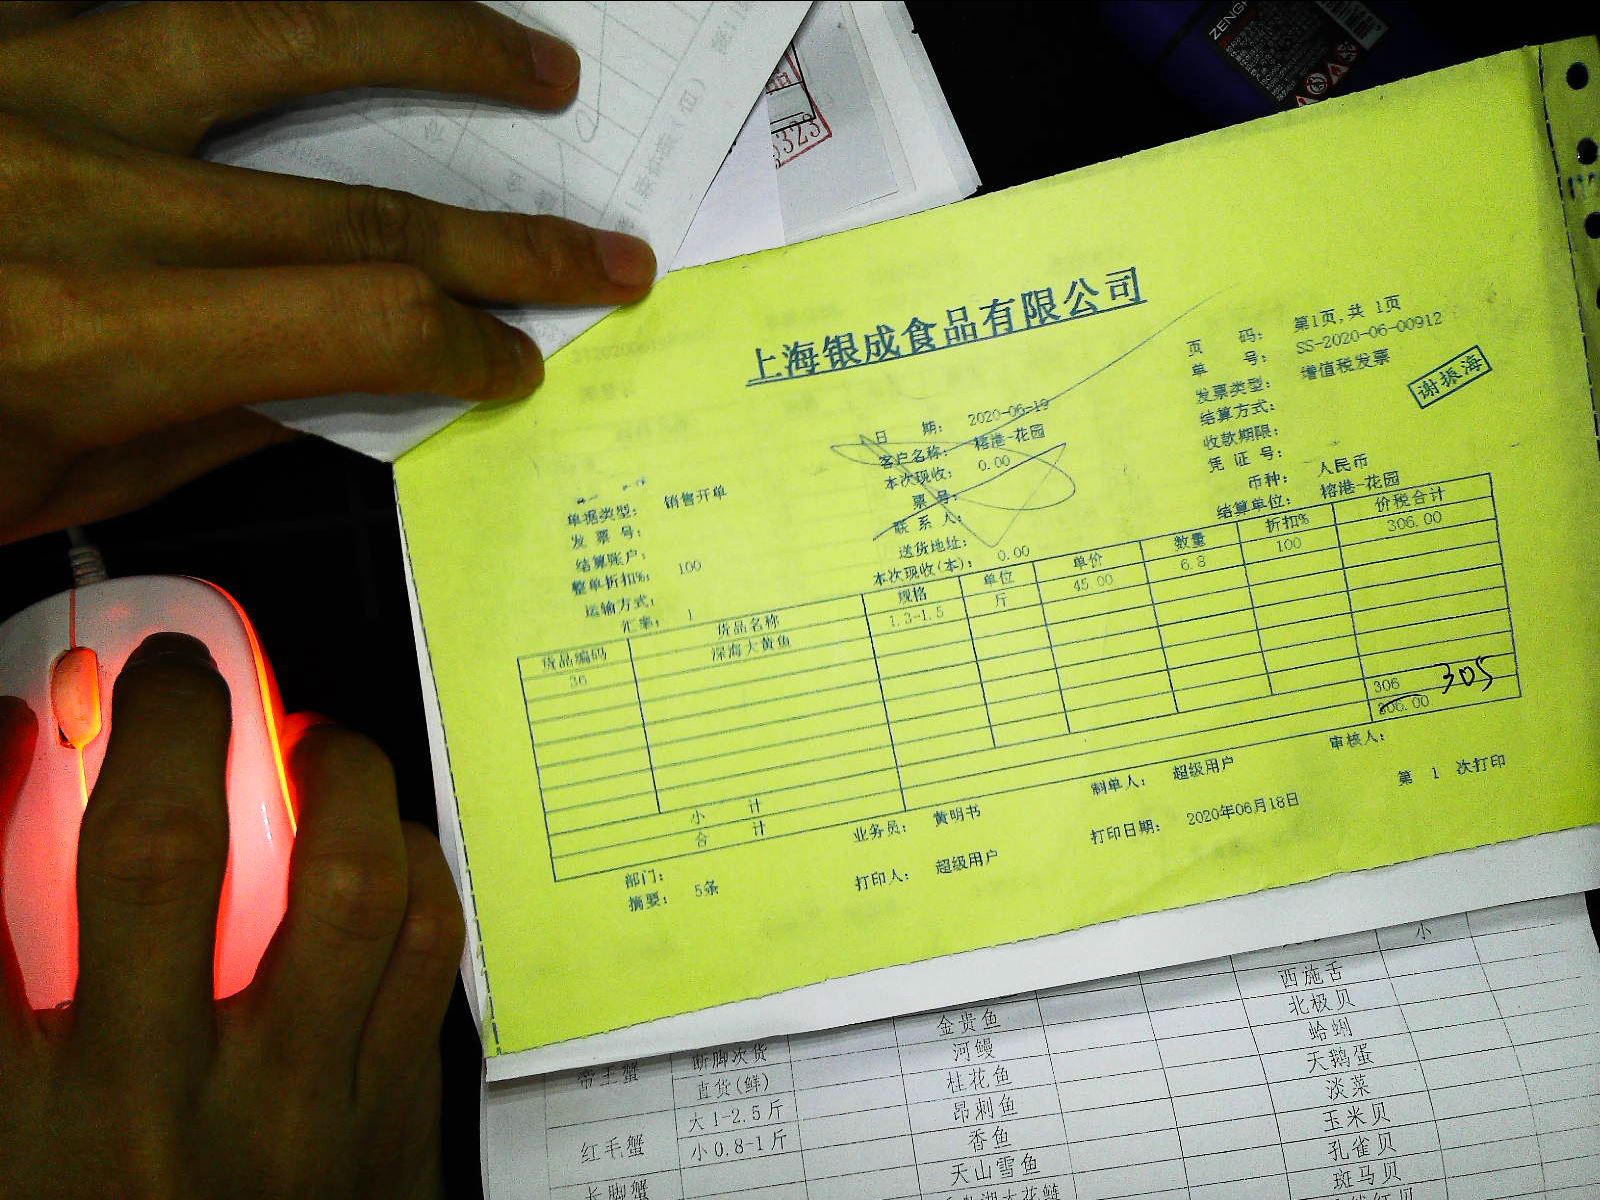 ZENG
3323
上海银成食品有限公司
页 码： 第1页,共 1页
单 号： SS-2020-06-00912
发票类型： 增值税发票
结算方式：
收款期限：
凭 证 号：
币种： 人民币
结算单位： 榕港-花园
谢振海
日 期： 2020-06-19
客户名称： 榕港-花园
本次现收： 0.00
票 号：
联 系 人：
送货地址：
本次现收(本)： 0.00
单据类型： 销售开单
发 票 号：
结算账户：
整单折扣%： 100
运输方式：
汇率： 1
货品编码 货品名称 规格 单位 单价 数量 折扣% 价税合计
36 深海大黄鱼 1.3-1.5 斤 45.00 6.8 100 306.00
小 计 306
合 计 306.00
305
部门： 业务员： 黄明书 制单人： 超级用户 审核人：
摘要： 5条 打印人： 超级用户 打印日期： 2020年06月18日 第 1 次打印
小
西施舌
金贵鱼 北极贝
帝王蟹 断脚次货 河鳗 蛤蜊
直货(鲜) 桂花鱼 天鹅蛋
红毛蟹 大1-2.5斤 昂刺鱼 淡菜
小0.8-1斤 香鱼 玉米贝
长脚蟹 天山雪鱼 孔雀贝
斑马贝